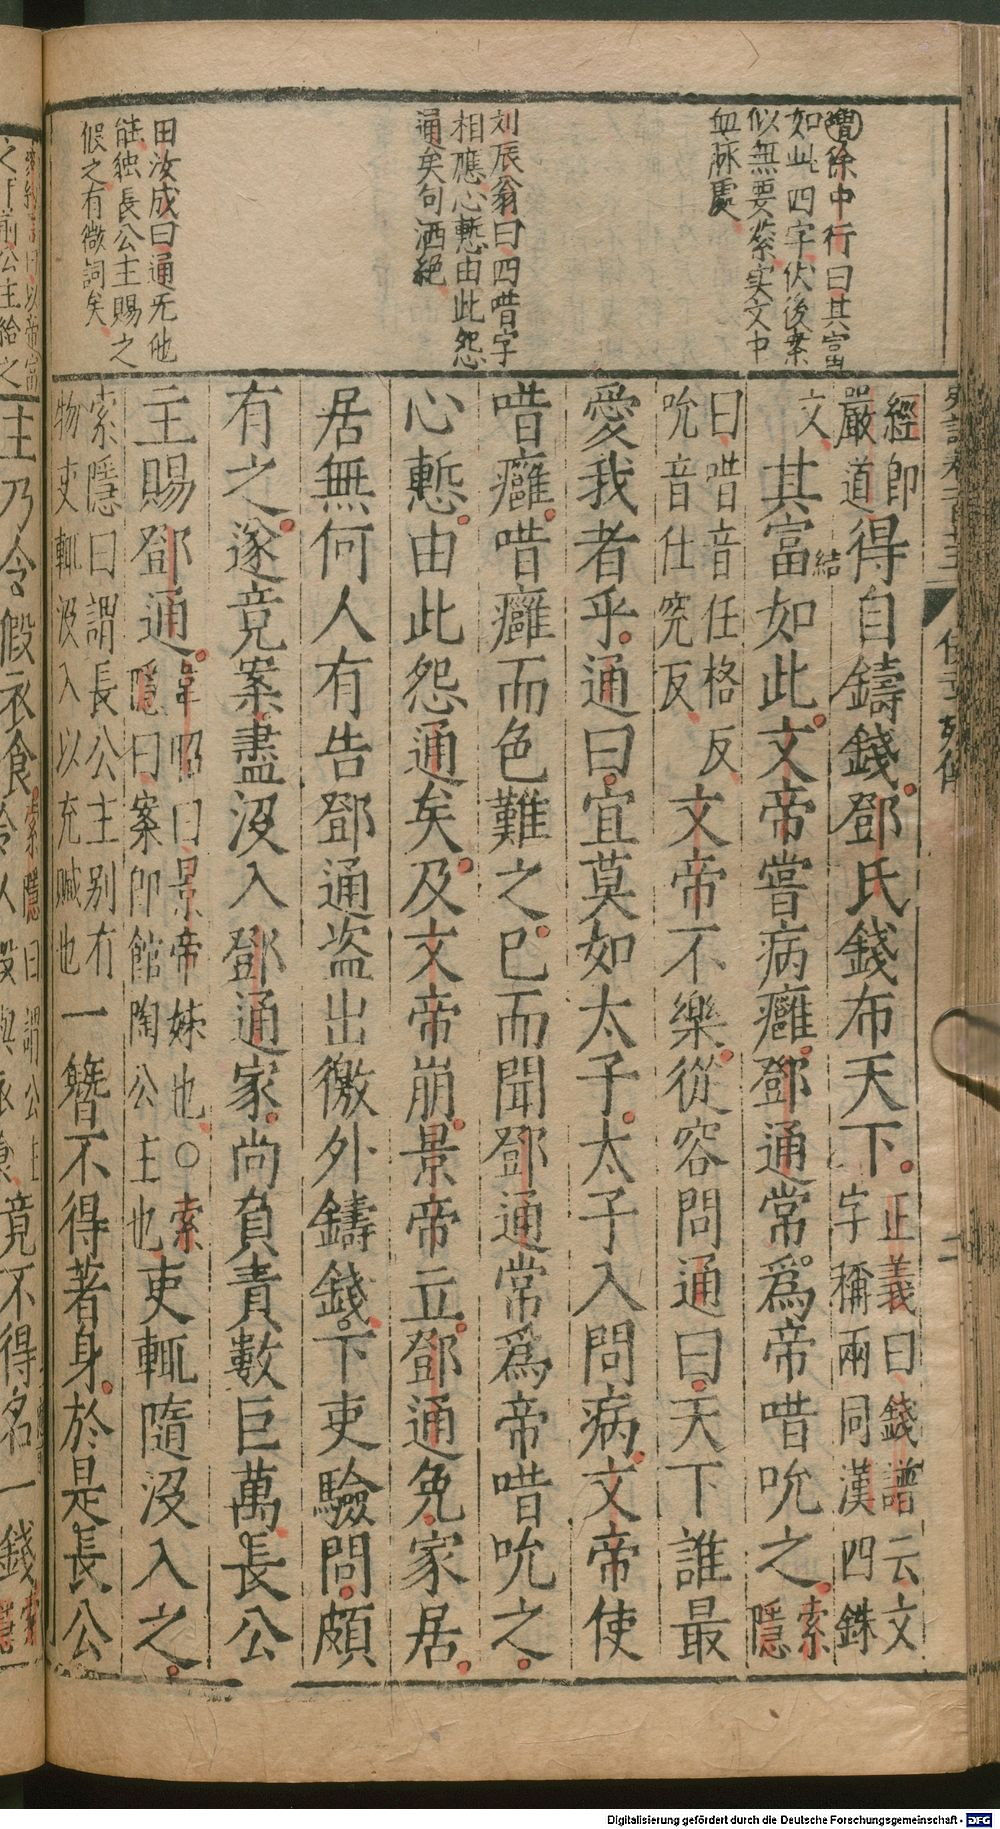 增徐中行曰其富
如此四字伏後案
似無要緊实文中
血脉處
刘辰翁曰四唶字
相應心慙由此怨
通矣句洒絕
田汝成曰通无他
能独長公主賜之
假之有微詞矣
經即
嚴道
得自鑄錢鄧氏錢布天下
正義曰錢譜云文
字稱兩同漢四銖
文
其富如此文帝嘗病癰鄧通常爲帝唶吮之
結
索
隱
曰唶音任格反
吮音仕究反
文帝不樂從容問通曰天下誰最
愛我者乎通曰宜莫如太子太子入問病文帝使
唶癰唶癰而色難之已而聞鄧通常爲帝唶吮之
心慙由此怨通矣及文帝崩景帝立鄧通免家居
居無何人有告鄧通盗出徼外鑄錢下吏驗問頗
有之遂竟案盡沒入鄧通家尚負責數巨萬長公
主賜鄧通
韋昭曰景帝姊也○索
隱曰案即館陶公主也
吏輒隨沒入之
索隱曰謂長公主別有
物吏輒沒入以充贓也
一簪不得著身於是長公
主乃令假衣食
竟不得名一錢
索
隱
二
Digitalisierung gefördert durch die Deutsche Forschungsgemeinschaft - DFG